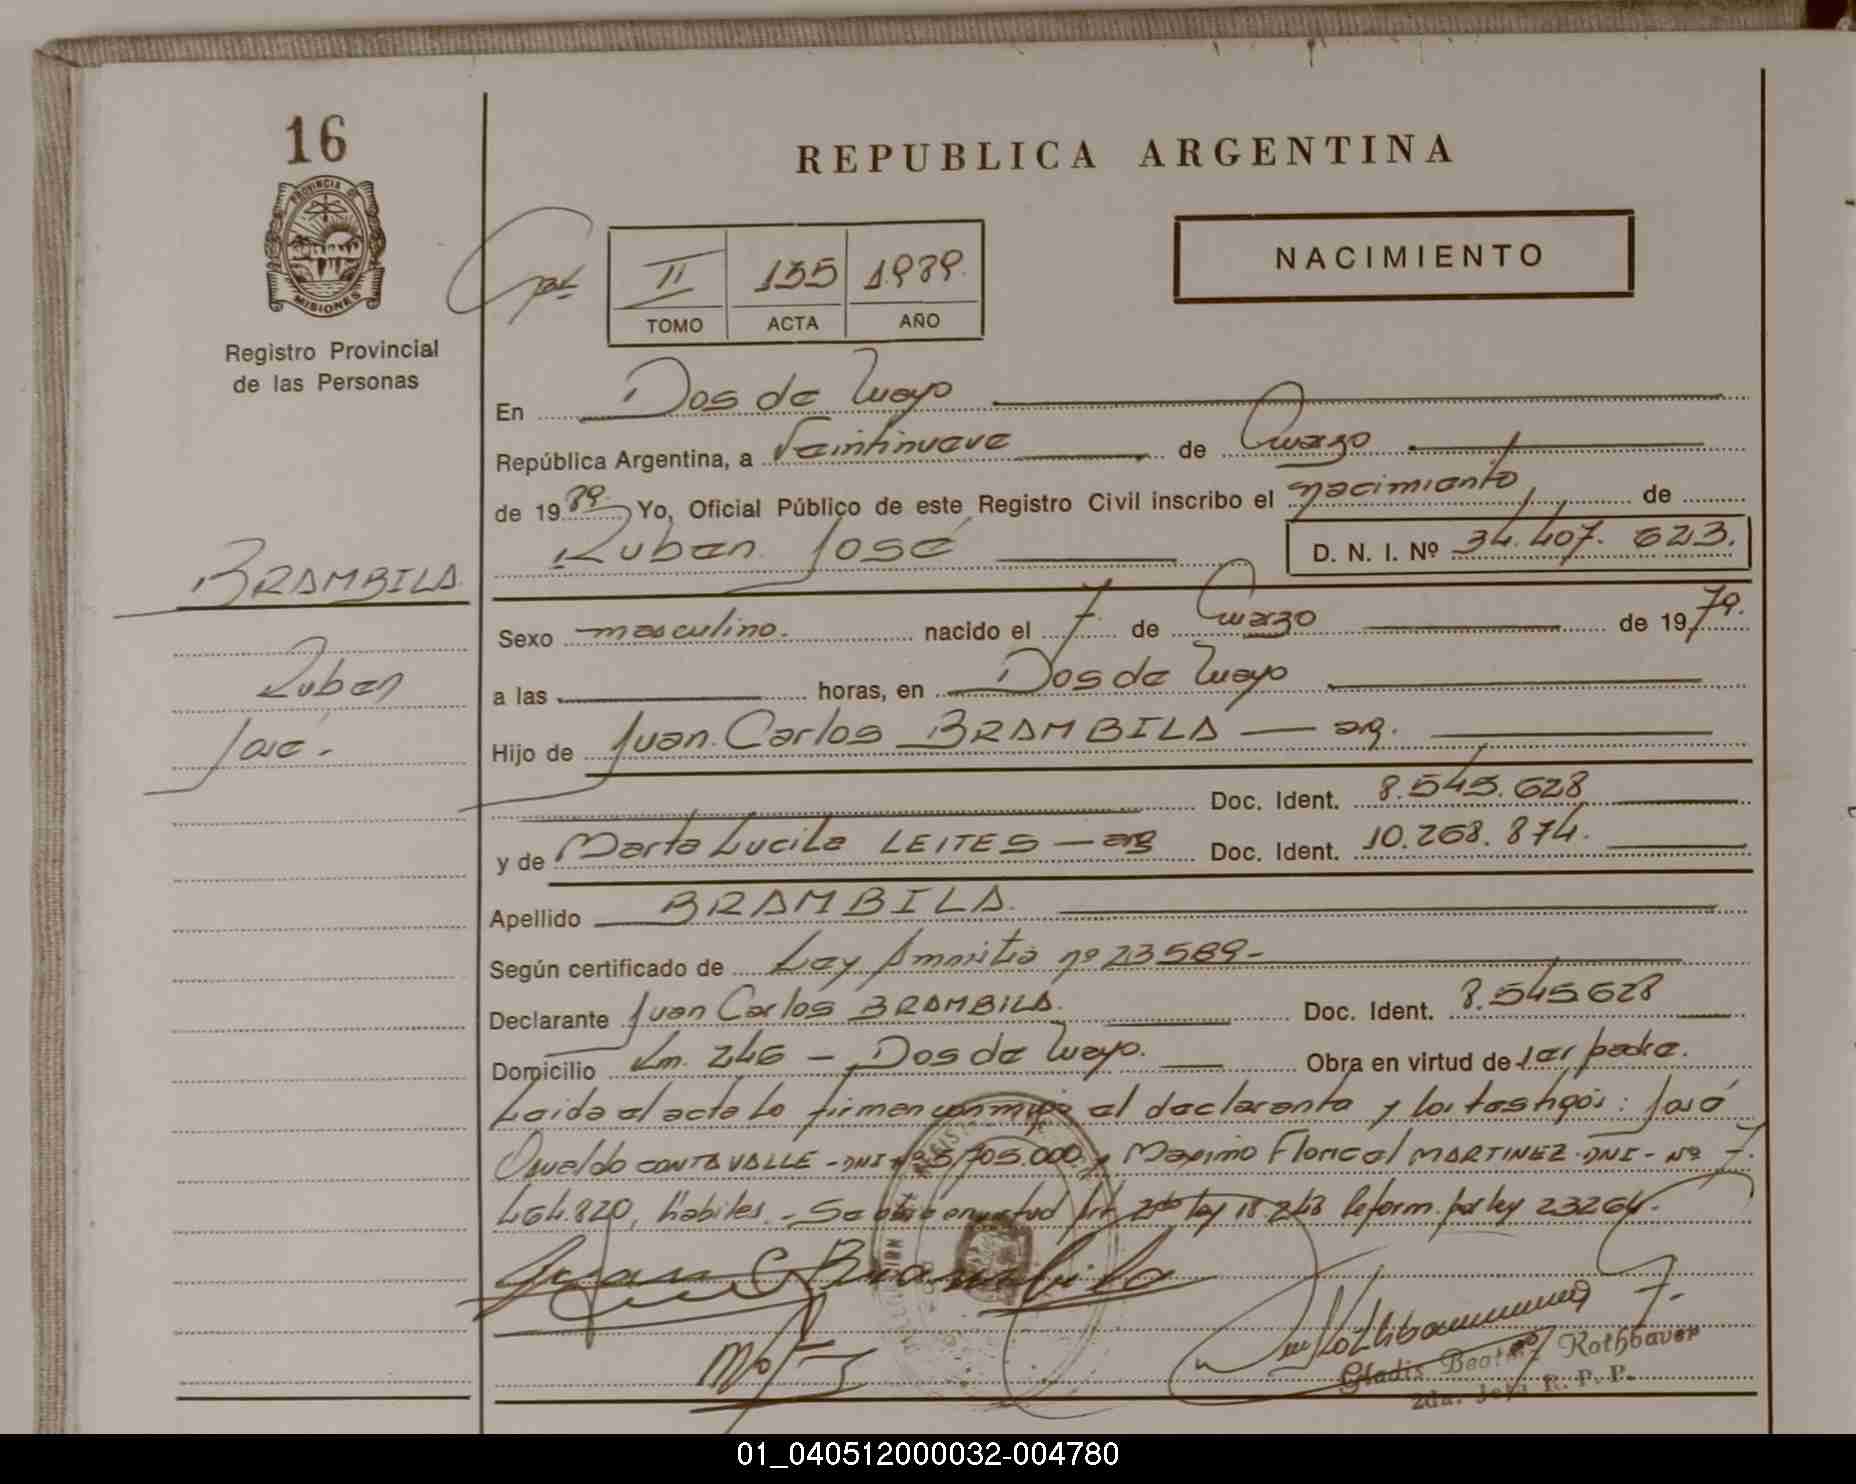 16
PROVINCIA DE
MISIONES
Registro Provincial
de las Personas
REPUBLICA ARGENTINA
NACIMIENTO
II 135 1989.
TOMO ACTA AÑO
En Dos de Mayo
República Argentina, a Veintinueve de Marzo
de 1989. Yo, Oficial Público de este Registro Civil inscribo el nacimiento, de
Ruben José
D. N. I. Nº 34.407.623.
BRAMBILA
Ruben
José.-
Sexo masculino. nacido el 7 de Marzo de 1979.
a las horas, en Dos de Mayo
Hijo de Juan Carlos BRAMBILA — arg.
Doc. Ident. 8.545.628
y de Marta Lucila LEITES — arg Doc. Ident. 10.268.874.
Apellido BRAMBILA.
Según certificado de Ley Amnistia nº 23589-
Declarante Juan Carlos BRAMBILA. Doc. Ident. 8.545628
Domicilio Km. 246 - Dos de Mayo. Obra en virtud de ser padre.
Leida el acta Lo firman conmigo el declarante y los testigos: José
Osvaldo CONTAVALLE - DNI nº 5.705.000 y Maximo Florical MARTINEZ - DNI - Nº 7.
464.820, Hábiles.- Se en virtud Art 2do Ley 18248 Reform. por ley 23264.-
Juan C Brambila
Gladis Beatriz Rothbauer
2da. Jefa R. P. P.
01_040512000032-004780